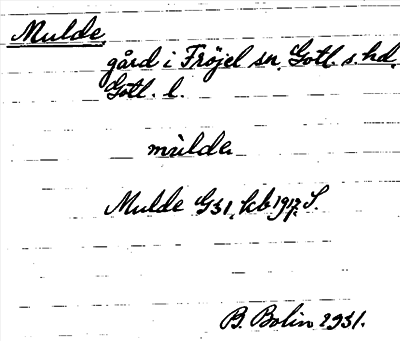 Mulde,
gård i Fröjel sn. Gotl. s. hd,
Gotl. l.
mùlde
Mulde G31, kb 1917. S.
B. Bolin 1931.